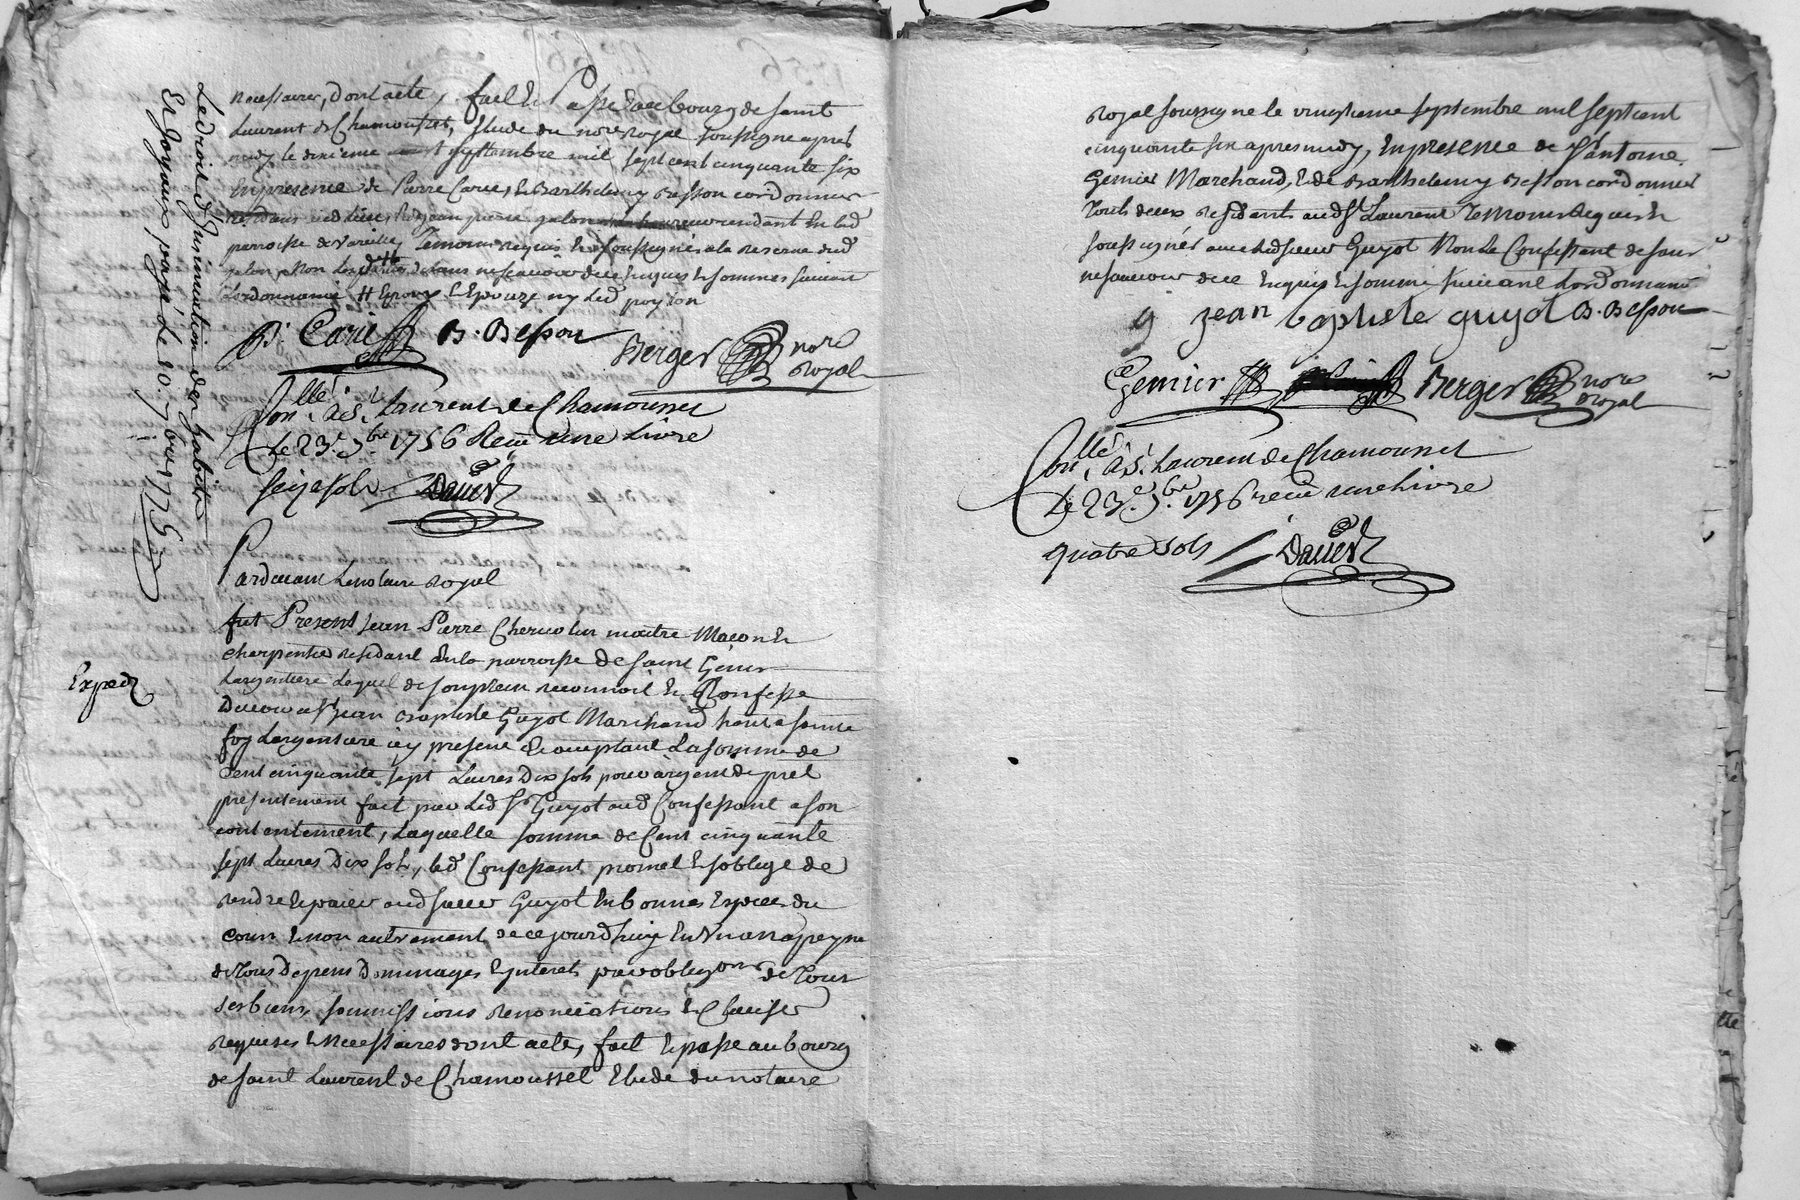 necessaires, dont acte, fait et Passé au bourg de saint
Laurent de Chamousset, Etude du no.re royal soussigné apres
midy le dixieme septembre mil sept cent cinquante six
En presence de Pierre Carie, et Barthelemy Besson cordonnier
residants aud lieu, jean pierre galon residant en lad
parroisse de Temoins requis et soussignés a la reserve dud
galon, Non lesd ne scavoir de ce enquis et sommés suivant
Lordonnance
P. Carie B. Besson
Berger no.re
Royal
Con.llé a S.t Laurent de Chamousset
Le 23.e 7.bre 1756 Reçu une Livre
seize sols Daver
Le droit d'insinuation des habits
Et Joyaux payé le 10. 7bre 1756
Pardevant Le notaire royal
fut Present Jean Pierre maitre Macon et
charpentier residant en la parroisse de saint Genis
Largentiere Lequel de son plein reconnoit et Confesse
Devoir a Sr Jean Baptiste Guyot Marchand hant a sainte
foy Largentiere icy present et acceptant La somme de
Cent cinquante sept Livres Dix sols pour argent de pret
presentement fait par Led Sr Guyot aud Confessant a son
contentement, Laquelle somme de Cent cinquante
sept Livres Dix sols, led Confessant promet et soblige de
rendre et paier aud sieur Guyot En bonnes Especes du
cours et non autrement de ce jourdhuy En un an a peyne
de Tous Depens Dommages et interets par oblig.on de Tous
ses biens, soumissions renonciations et Clauses
requises et Necessaires dont acte, fait et passé au bourg
de saint Laurent de Chamousset Etude du notaire
Exped
royal soussigné le vingtieme septembre mil sept cent
cinquante six apres midy, En presence de Sr antoine
Gemier Marchand, et de Barthelemy Besson cordonnier
Touts deux residants aud St Laurent Temoins Requis et
soussignés avec led sieur Guyot Non Le Confessant de
ne scavoir de ce Enquis et sommé suivant Lordonnance
jean baptiste guyot B. Besson
Gemier Berger no.re
Royal
Con.llé a S.t Laurent de Chamousset
Le 23.e 7.bre 1756 reçu une Livre
quatre sols Daver